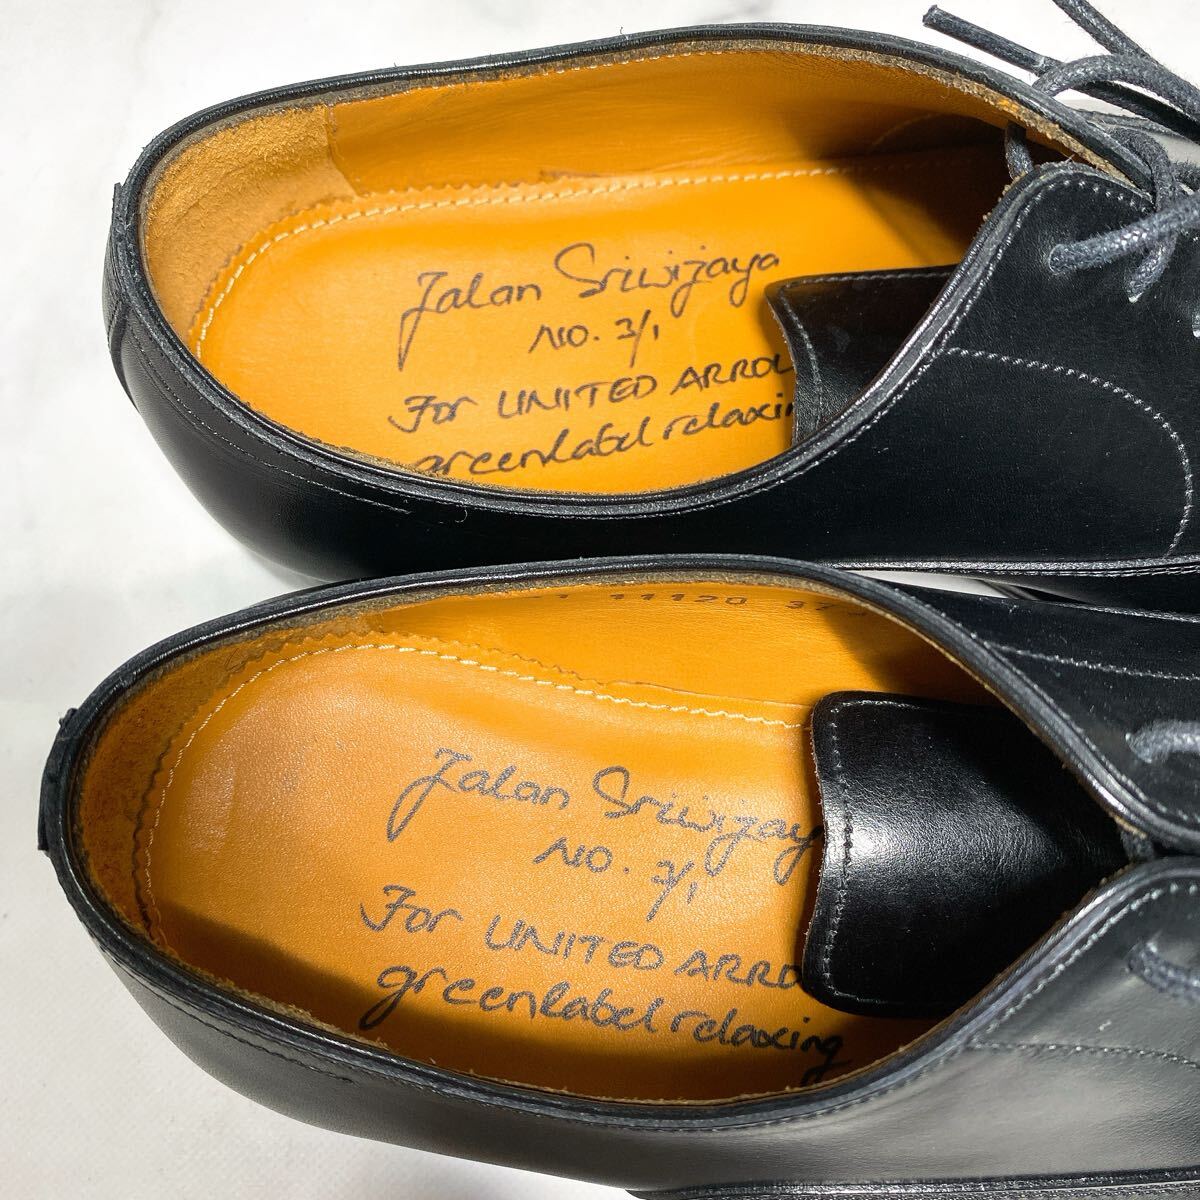 Jalan Sriwijaya
NO. 3/1
For UNITED
greenlabel relaxing
11120 37
Jalan Sriwijaya
NO. 3/1
For UNITED
greenlabel relaxing